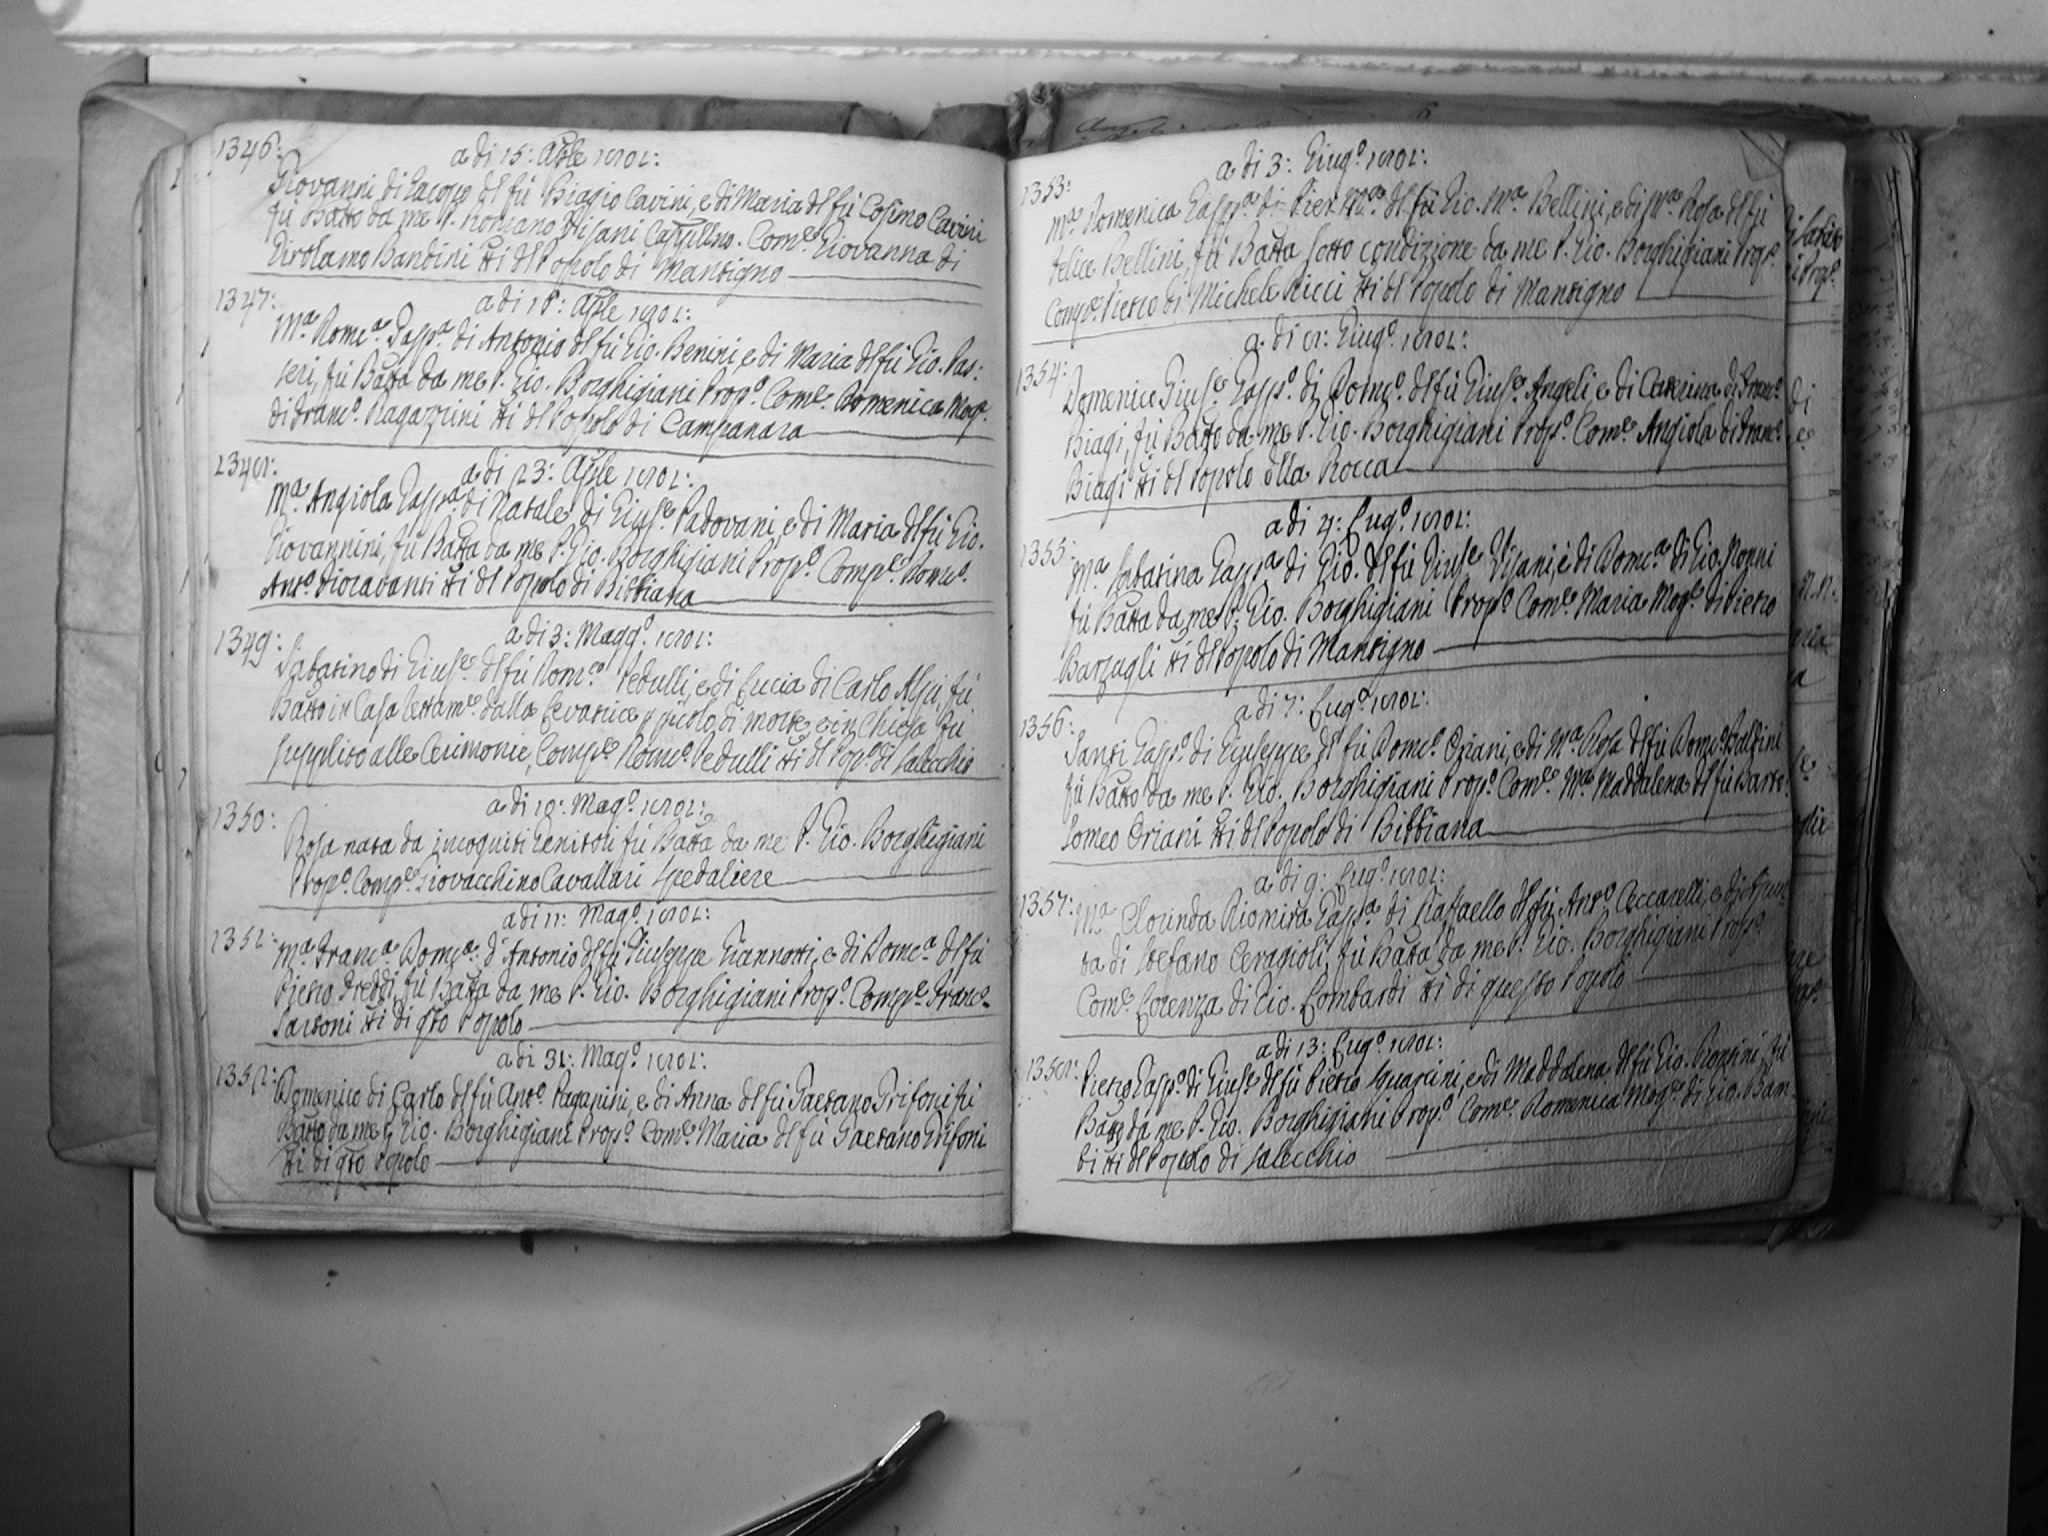 1346:
a di 15: Aple 1801:
Giovanni di Iacopo del fù Biagio Cavini, e di Maria del fù Cosimo Cavini
fù Batto da me P. Romano Visani Cappllno. Come Giovanna di
Girolamo Bandini tti del Popolo di Mantigno
1347:
a di 18: Aple 1801:
Ma. Domca. Gaspa. di Antonio del fù Gio. Benini, e di Maria del fù Gio. Pas:
seri, fù Batta da me P. Gio. Borghigiani Propo. Come. Domenica Mog.
di Franco. Ragazzini tti del Popolo di Campanara
1348:
a di 23: Aple 1801:
Ma. Angiola Gaspa. di Natale di Giuse. Padovani, e di Maria del fù Gio.
Giovannini, fù Batta da me P. Gio. Borghigiani Propo. Compe. Domco.
Anto. Fioravanti tti del Popolo di Bibbiana
1349:
a di 3: Maggo. 1801:
Sabatino di Giuse. del fù Domco. Vedulli, e di Lucia di Carlo Alpi, fù
Batto in Casa lettame. dalla Levatrice p picolo di morte, e in Chiesa fù
supplito alle Cerimonie, Compe. Domco. Vedulli tti del Popo. di Salecchio
1350:
a di 10: Mago. 1801:
Rosa nata da incogniti Genitori fù Batta da me P. Gio. Borghigiani
Propo. Compe. Giovacchino Cavallari Spedaliere
1351:
a di 11: Mago. 1801:
Ma. Franca. Domca. d'Antonio del fù Giuseppe Giannotti, e di Domca. del fù
Pietro Freddi, fù Batta da me P. Gio. Borghigiani Propo. Compe. Franco.
Sartoni tti di qto Popolo
1352:
a di 31: Mago. 1801:
Domenico di Carlo del fù Anto. Paganini, e di Anna del fù Gaetano Grifoni fù
Batto da me P. Gio. Borghigiani Propo. Come. Maria del fù Gaetano Grifoni
tti di qto Popolo
a di 3: Giugo. 1801:
1353:
Ma. Domenica Gaspa. di Pier Ma. del fù Gio. Ma. Bellini, e di Ma. Rosa del fù
Felice Bellini, fù Batta sotto condizione da me P. Gio. Borghigiani Propo.
Compe. Pietro di Michele Ricci tti del Popolo di Mantigno
a di 8: Giugo. 1801:
1354:
Domenico Giuse. Gaspo. di Domco. del fù Giuse. Angeli, e di Caterina di Franco.
Biagi, fù Batto da me P. Gio. Borghigiani Propo. Come. Angiola di Franco.
Biagi tti del Popolo della Rocca
a di 4: Lugo. 1801:
1355:
Ma. Sabatina Gaspa. di Gio. del fù Giuse. Visani, e di Domca. di Gio. Nonni
fù Batta da me P. Gio. Borghigiani Propo. Come. Maria Moge. di Pietro
Barzagli tti del Popolo di Mantigno
a di 7: Lugo. 1801:
1356:
Santi Gaspo. di Giuseppe del fù Domco. Oriani, e di Ma. Rosa del fù Domco. Balbini
fù Batto da me P. Gio. Borghigiani Propo. Come. Ma. Maddalena del fù Barto:
lomeo Oriani tti del Popolo di Bibbiana
a di 9: Lugo. 1801:
1357:
Ma. Clorinda Diomira Gaspa. di Raffaello del fù Anto. Ceccarelli, e di
ta di Stefano Ceragioli, fù Batta da me P. Gio. Borghigiani Propo.
Come. Lorenza di Gio. Lombardi tti di questo Popolo
a di 13: Lugo. 1801:
1358:
Pietro Gaspo. di Giuse. del fù Pietro Squarcini, e di Maddalena del fù Gio. fù
Batto da me P. Gio. Borghigiani Propo. Come. Domenica Moge. di Gio. Bam-
bi tti del Popolo di Salecchio